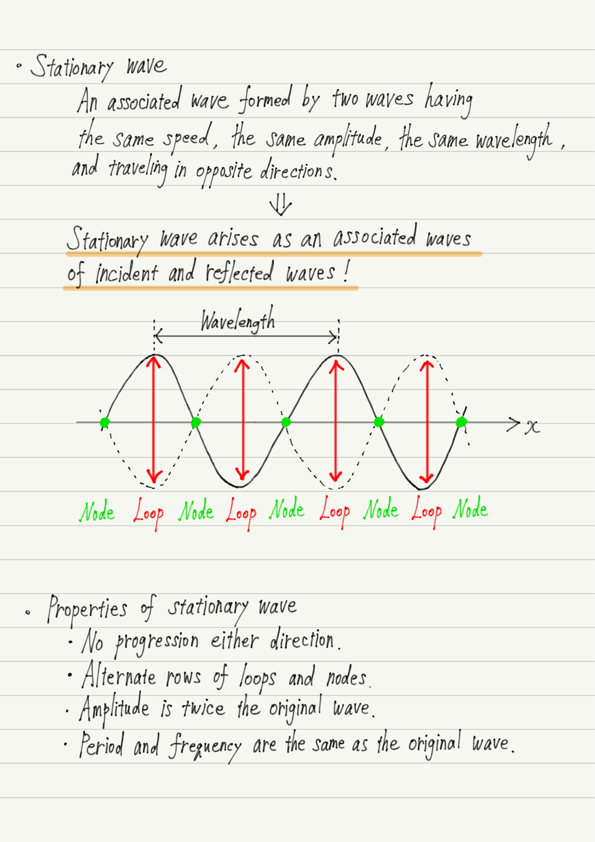 ・Stationary wave
An associated wave formed by two waves having
the same speed, the same amplitude, the same wavelength,
and traveling in opposite directions.
⇓
Stationary wave arises as an associated waves
of incident and reflected waves!
Wavelength
x
Node Loop Node Loop Node Loop Node Loop Node
。Properties of stationary wave
・No progression either direction.
・Alternate rows of loops and nodes.
・Amplitude is twice the original wave.
・Period and frequency are the same as the original wave.